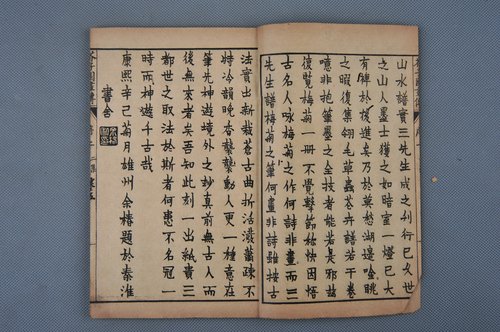 山水譜實三先生成之刋行已久世
之山人墨士獲之如暗室一燈已大
有裨於後進矣乃於莫愁湖邊唫眺
之暇復集翎毛草蟲花卉譜若干卷
噫非抱筆墨之全技者能若是邪茲
復覽梅菊一冊不覺擊節稱快因悟
古名人咏梅菊之作何詩非畫而三
先生譜梅菊之筆何畫非詩雖接古
法實出新裁蒼古曲折活潑蕭疎不
特冷韻晚香襲襲動人更一種意在
筆先神遊境外之妙真前無古人而
後無來者矣吾知此刻一出紙貴三
都世之取法於斯者何患不名冠一
時而神遊千古哉
康熙辛巳菊月雄州余椿題於秦淮
書舍